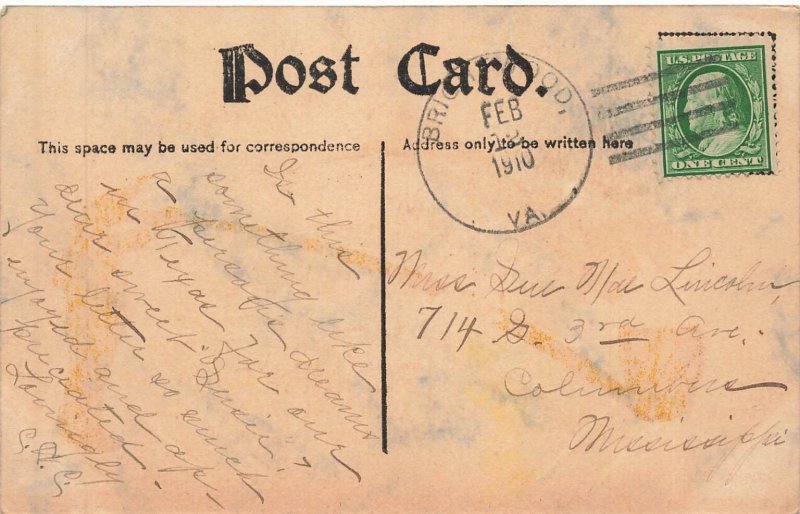 Post Card.
This space may be used for correspondence
Address only to be written here
BRIGHTWOOD,
FEB
1910
VA.
U.S. POSTAGE
ONE CENT
Is this
something like
a periodic dream
in Texas for our
dear sweet "Susie",
Your letter so much
enjoyed and ap-
preciated.
Lovingly
C. L. C.
Miss Sue Mae Lincoln,
714 S. 3rd Ave.
Columbus
Mississippi